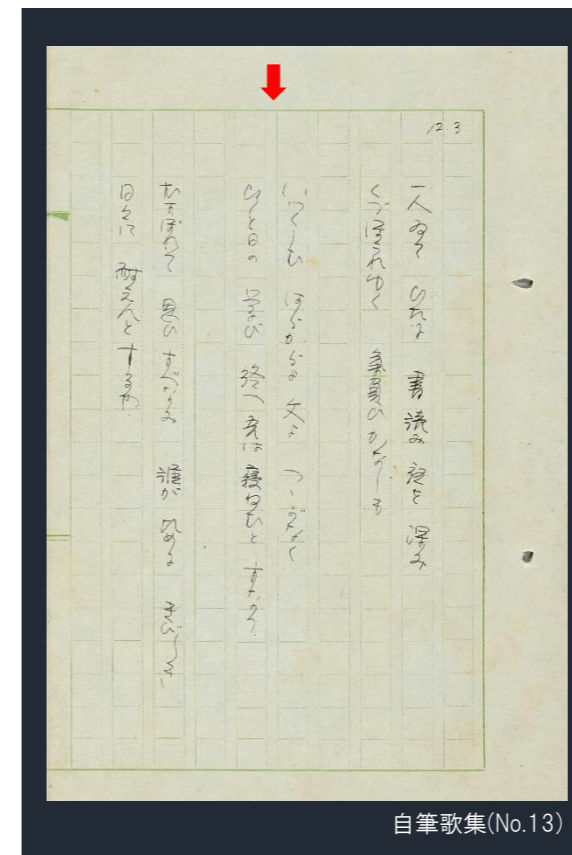 12 3
一人ゐて ひたに 書読み 夜を 深み
くづほれゆく 身裏ひ かなしも
いつくしむ はらからよ 父よ つゝがなく
ひと日の 学び 終へ 吾は 寝ねむと すなり
むすぼれて 思ひ すべなみ 誰が 図める きびしき
日々に 耐えんとするか
自筆歌集(No.13)